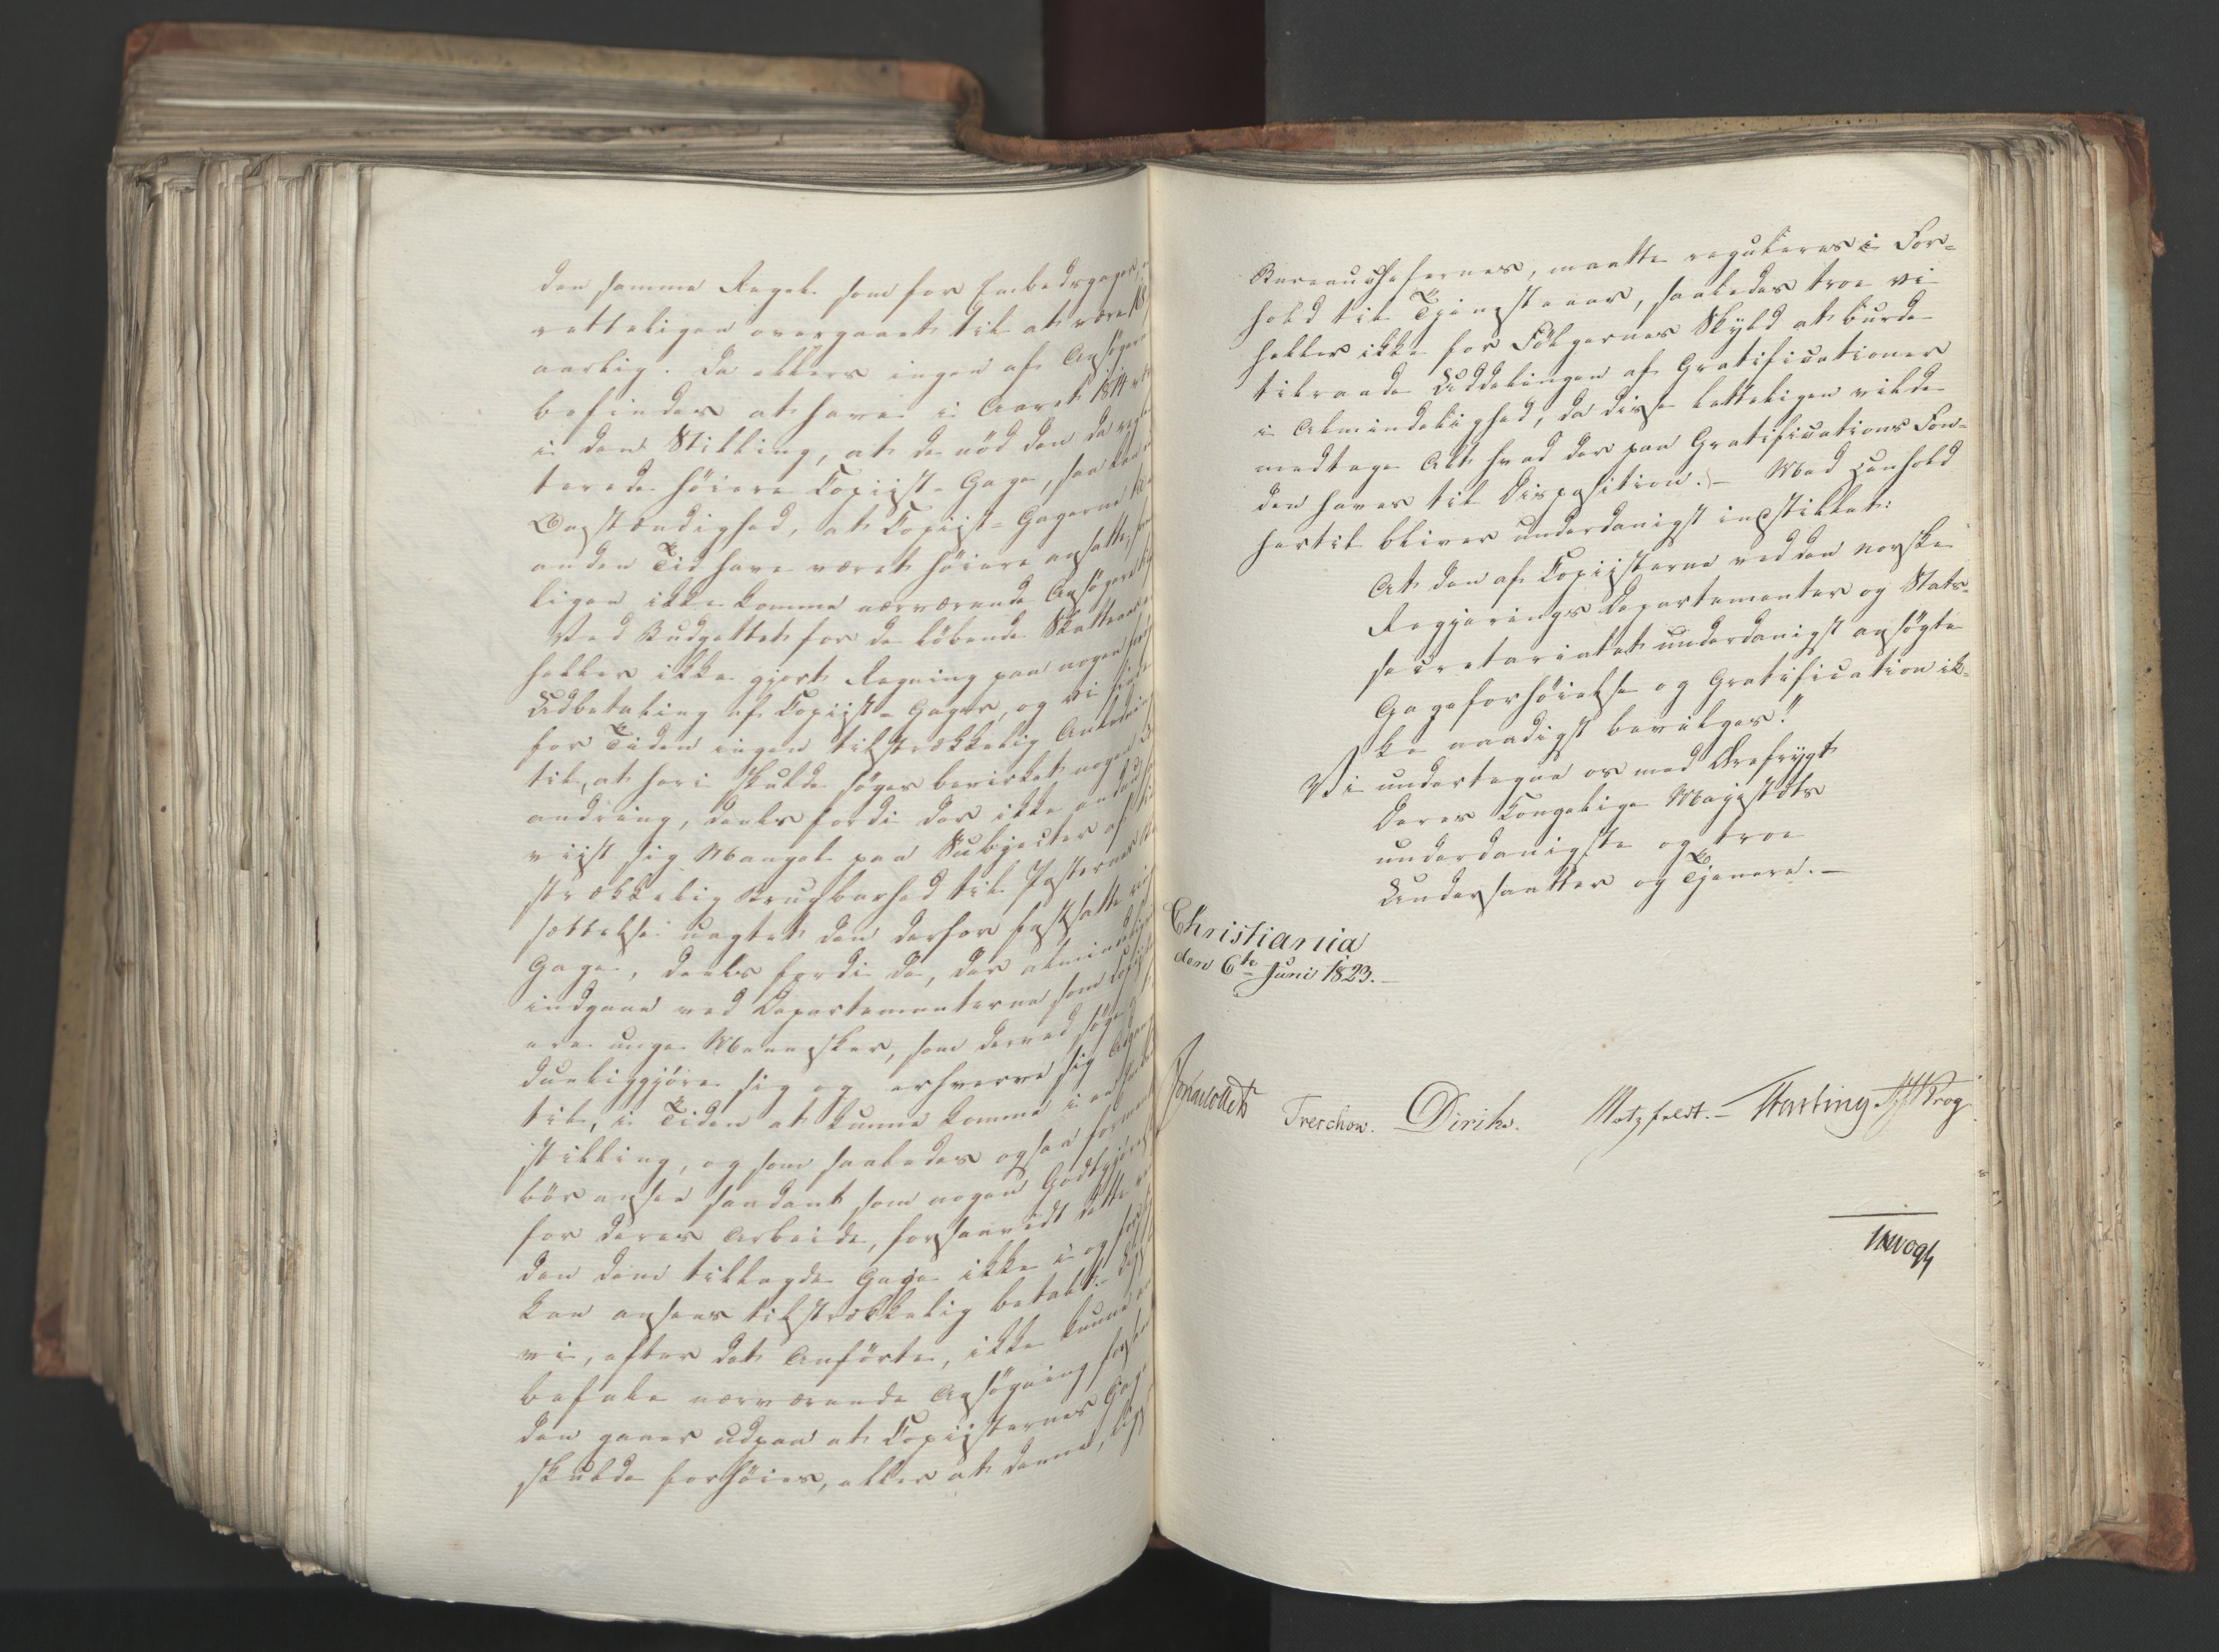 den samme Regel som for Embedsgager,
retteligen overgaaet til at være
aarlig. Da ellers ingen af Ansøgerne
befindes at have i Aaret 1814
i den Stilling, at de nöd den da
terede höiere Copiist-Gage, saa kan
Omstændighed, at Copiist-Gagerne
anden Tid have været höiere ansatte,
ligen ikke komme nærværende Ansögere
Ved Budgettet for de löbende Skatteaar
heller ikke gjort Regning paa nogen
Udbetaling af Copiist-Gager, og vi
for Tiden ingen tilstrækkelig Anledning
til, at heri skulde söges bevirket nogen
andring, deels fordi der ikke endnu
viist sig Mangel paa Subjecter af
strækkelig Brugbarhed til Posternes
sættelse uagtet den derfor fastsatte
Gage, deels fordi de, der almindeligen
indgaae ved Departementerne som
ere unge Mennesker, som derved söge
dueliggjöre sig og erhverve sig Adgang
til, i Tiden at kunne komme i en
stilling, og som saaledes ogsaa
bör ansee saadant som nogen Godtgjörelse
for deres Arbeide, forsaavidt dette
den dem tillagde Gage ikke i og for
kan ansees tilstrækkelig betalt.
vi, efter det Anförte, ikke kunne
befale nærværende Ansögning
den gaaer udpaa at Copiisternes
skulde forhöies, eller at denne,
Bureauchefernes, maatte reguleres i For-
hold til Tjenesteaar, saaledes troe vi
heller ikke for Fölgernes Skyld at burde
tilraade Uddelingen af Gratificationer
i Almindelighed, da disse letteligen vilde
medtage Alt hvad der paa Gratifications Fon-
den haves til Disposition. - Med Henhold
hertil bliver underdanigst indstillet:
At den af Copiisterne ved den norske
Regjerings Departementer og Stats-
secretariatet underdanigst ansögte
Gageforhöielse og Gratification ik-
ke naadigst bevilges."
Vi undertegne os med Ærefrygt
Deres Kongelige Majestæts
underdanigste og troe
Undersaatter og Tjenere. -
Christiania
den 6te Juni 1823.
Jonas Collett Treschow. Diriks. Motzfeldt. - Fasting Krog